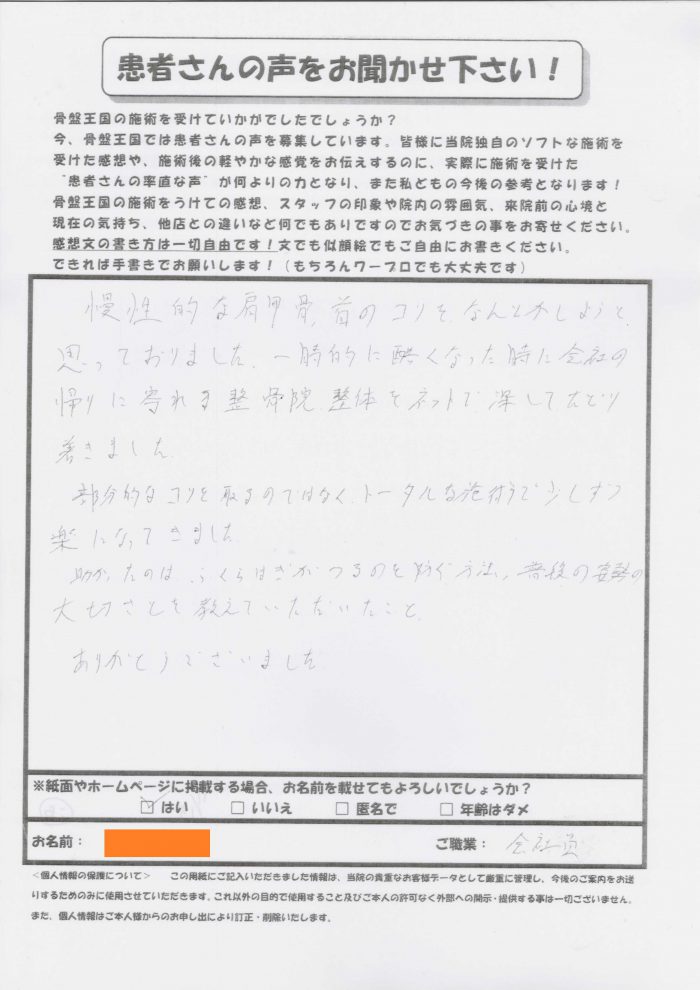 患者さんの声をお聞かせ下さい！
骨盤王国の施術を受けていかがでしたでしょうか？
今、骨盤王国では患者さんの声を募集しています。皆様に当院独自のソフトな施術を
受けた感想や、施術後の軽やかな感覚をお伝えするのに、実際に施術を受けた
“患者さんの率直な声”が何よりの力となり、また私どもの今後の参考となります！
骨盤王国の施術をうけての感想、スタッフの印象や院内の雰囲気、来院前の心境と
現在の気持ち、他店との違いなど何でもありですのでお気づきの事をお寄せください。
感想文の書き方は一切自由です！文でも似顔絵でもご自由にお書きください。
できれば手書きでお願いします！（もちろんワープロでも大丈夫です）
慢性的な肩甲骨、首のコリを、なんとかしようと
思っておりました。一時的に酷くなった時に会社の
帰りに寄れる整骨院、整体をネットで、探してたどり
着きました。
部分的なコリを取るのではなく、トータルな施術で少しずつ
楽になってきました。
助かったのは、ふくらはぎがつるのを防ぐ方法、普段の姿勢の
大切さとを教えていただいたこと。
ありがとうございました
※紙面やホームページに掲載する場合、お名前を載せてもよろしいでしょうか？
☑はい □いいえ □匿名で □年齢はダメ
お名前： ご職業： 会社員
＜個人情報の保護について＞ この用紙にご記入いただきました情報は、当院の貴重なお客様データとして厳重に管理し、今後のご案内をお送
りするためのみに使用させていただきます。これ以外の目的で使用すること及びご本人の許可なく外部への開示・提供する事は一切ございません。
また、個人情報はご本人様からのお申し出により訂正・削除いたします。